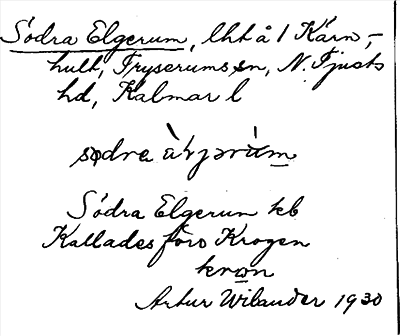 Södra Elgerum, lht å 1 Kärn-
hult, Tryserums sn, N. Tjusts
hd, Kalmar l
södra
Södra Elgerum kb
Kallades förr Krogen
Artur Wilander 1930